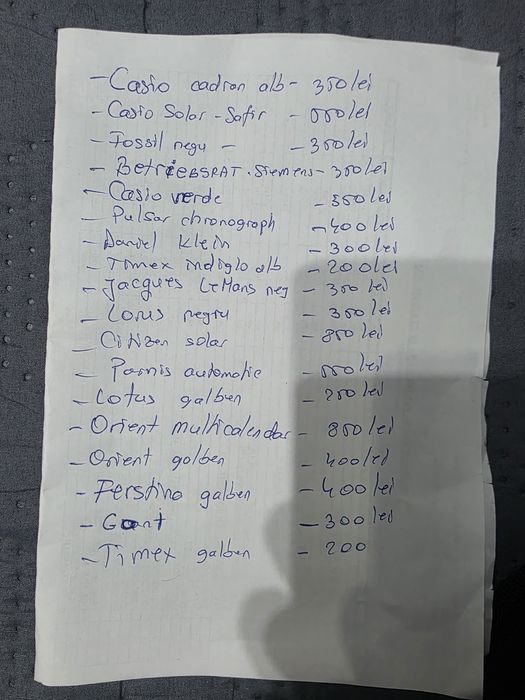 - Casio cadran alb - 350 lei
- Casio Solar - Safir - 550 lei
- Fossil negru - - 350 lei
- BetriEBSRAT. Siemens - 350 lei
- Casio verde - 350 lei
- Pulsar chronograph - 400 lei
- Daniel Klein - 300 lei
- Timex indiglo alb - 200 lei
- Jacques LeMans neg - 350 lei
- Lorus negru - 350 lei
- Citizen solar - 850 lei
- Parnis automatic - 550 lei
- Lotus galben - 250 lei
- Orient multicalendar - 850 lei
- Orient galben - 400 lei
- galben - 400 lei
- Gant - 300 lei
- Timex galben - 200